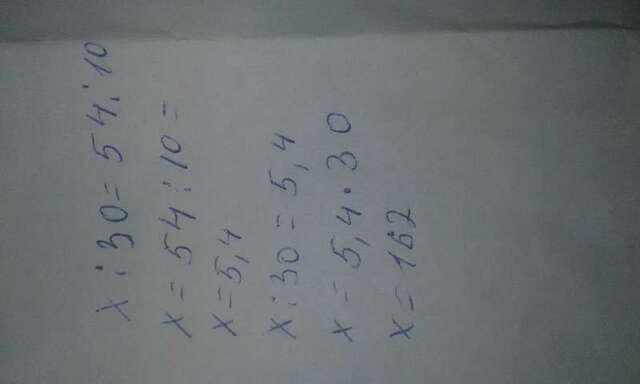 x : 30 = 54 : 10
x = 54 : 10 =
x = 5,4
x : 30 = 5,4
x = 5,4 · 30
x = 162